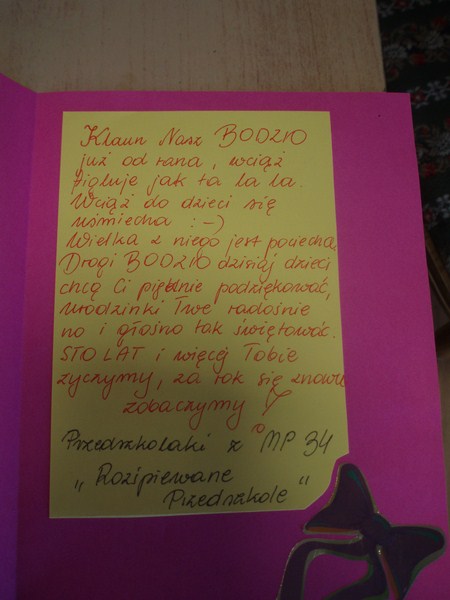 Klaun Nasz BODZIO
już od rana, wciąż
figluje jak ta la la.
Wciąż do dzieci się
uśmiecha :-)
Wielka z niego jest pociecha.
Drogi BODZIO dzisiaj dzieci
chcą Ci pięknie podziękować,
urodzinki Twe radośnie
no i głośno tak świętować.
STO LAT i więcej Tobie
życzymy, za rok się znowu
zobaczymy!
Przedszkolaki z MP 34
„Rozśpiewane
Przedszkole"